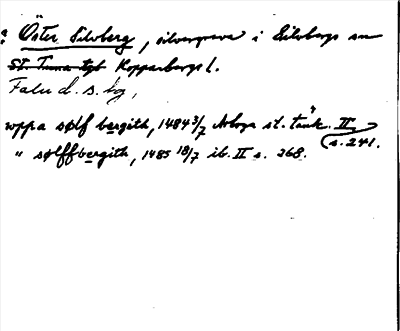 : Öster Silvberg, silvergruva i Silvbergs sn
St. Tuna tgt Kopparbergs l.
Falu d. s. hög,
uppa sølf bergith, 1484 3/7 Arboga st. tänk. II
s. 241.
" sølffbergith, 1485 18/7 ib. II s. 268.